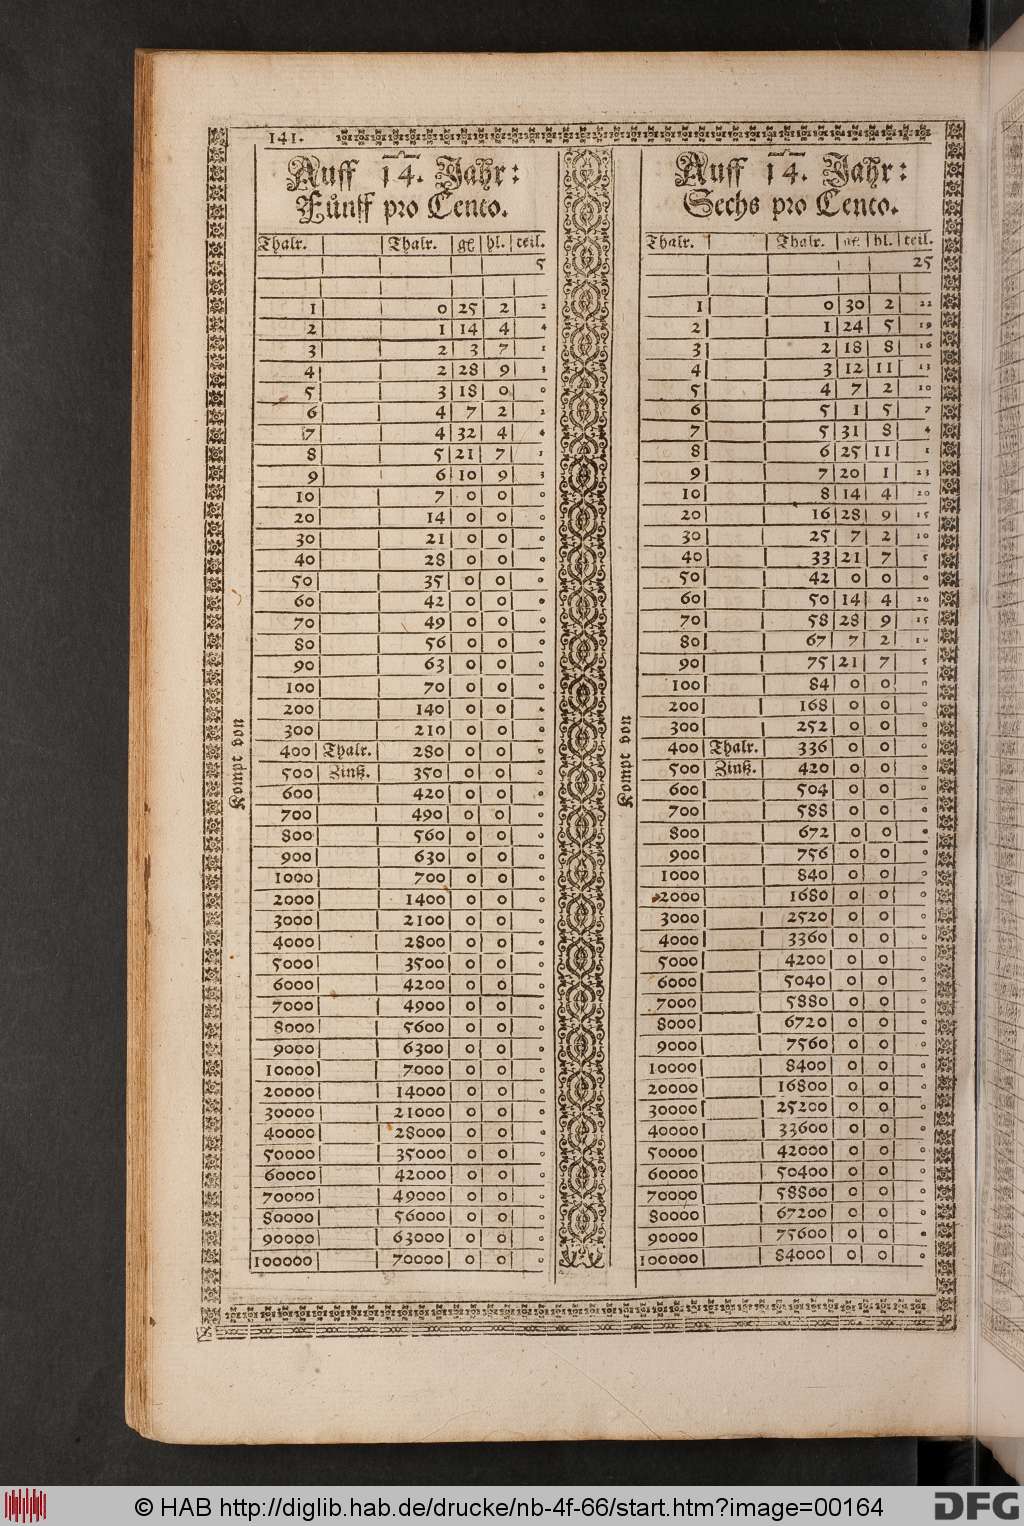 141.
Auff 14. Jahr:
Fünff pro Cento.
Thalr. Thalr. gl hl. teil.
5
1 0 25 2 2
2 1 14 4 4
3 2 3 7 1
4 2 28 9 3
5 3 18 0 0
6 4 7 2 2
7 4 32 4 4
8 5 21 7 1
9 6 10 9 3
10 7 0 0 0
20 14 0 0 0
30 21 0 0 0
40 28 0 0 0
50 35 0 0 0
60 42 0 0 0
70 49 0 0 0
80 56 0 0 0
90 63 0 0 0
100 70 0 0 0
200 140 0 0 0
300 210 0 0 0
400 Thalr. 280 0 0 0
500 Zinß. 350 0 0 0
600 420 0 0 0
700 490 0 0 0
800 560 0 0 0
900 630 0 0 0
1000 700 0 0 0
2000 1400 0 0 0
3000 2100 0 0 0
4000 2800 0 0 0
5000 3500 0 0 0
6000 4200 0 0 0
7000 4900 0 0 0
8000 5600 0 0 0
9000 6300 0 0 0
10000 7000 0 0 0
20000 14000 0 0 0
30000 21000 0 0 0
40000 28000 0 0 0
50000 35000 0 0 0
60000 42000 0 0 0
70000 49000 0 0 0
80000 56000 0 0 0
90000 63000 0 0 0
100000 70000 0 0 0
Kompt von
Auff 14. Jahr:
Sechs pro Cento.
Thalr. Thalr. gl. hl. teil.
25
1 0 30 2 22
2 1 24 5 19
3 2 18 8 16
4 3 12 11 13
5 4 7 2 10
6 5 1 5 7
7 5 31 8 4
8 6 25 11 1
9 7 20 1 23
10 8 14 4 20
20 16 28 9 15
30 25 7 2 10
40 33 21 7 5
50 42 0 0 0
60 50 14 4 20
70 58 28 9 15
80 67 7 2 10
90 75 21 7 5
100 84 0 0 0
200 168 0 0 0
300 252 0 0 0
400 Thalr. 336 0 0 0
500 Zinß. 420 0 0 0
600 504 0 0 0
700 588 0 0 0
800 672 0 0 0
900 756 0 0 0
1000 840 0 0 0
2000 1680 0 0 0
3000 2520 0 0 0
4000 3360 0 0 0
5000 4200 0 0 0
6000 5040 0 0 0
7000 5880 0 0 0
8000 6720 0 0 0
9000 7560 0 0 0
10000 8400 0 0 0
20000 16800 0 0 0
30000 25200 0 0 0
40000 33600 0 0 0
50000 42000 0 0 0
60000 50400 0 0 0
70000 58800 0 0 0
80000 67200 0 0 0
90000 75600 0 0 0
100000 84000 0 0 0
Kompt von
© HAB http://diglib.hab.de/drucke/nb-4f-66/start.htm?image=00164
DFG